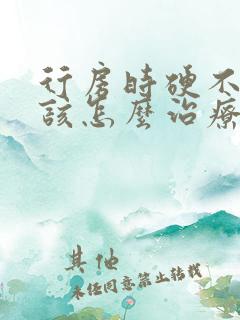 行房时硬不
该怎么治疗
其他
未经同意禁止转载